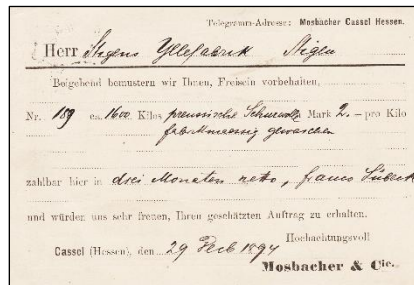 Telegramm-Adresse: Mosbacher Cassel Hessen.
Herr Stigens Yllefabrik Stigen
Beigehend bemustern wir Ihnen, Freisein vorbehalten,
Nr. 189 ca. 1600 Kilos preussische Schurwolle Mark 2.– pro Kilo
fabrikmaessig gewaschen
zahlbar hier in drei Monaten netto, franco Lübeck
und würden uns sehr freuen, Ihren geschätzten Auftrag zu erhalten.
Hochachtungsvoll
Cassel (Hessen), den 29 Feb 1894
Mosbacher & Cie.